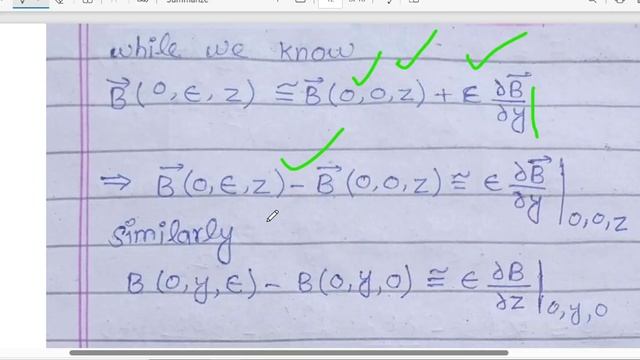 while we know
$\vec{B}(0,\epsilon,z) \cong \vec{B}(0,0,z) + \epsilon \frac{\partial \vec{B}}{\partial y}|$
$\Rightarrow \vec{B}(0,\epsilon,z) - \vec{B}(0,0,z) \cong \epsilon \frac{\partial \vec{B}}{\partial y}|_{0,0,z}$
similarly
$B(0,y,\epsilon) - B(0,y,0) \cong \epsilon \frac{\partial B}{\partial z}|_{0,y,0}$